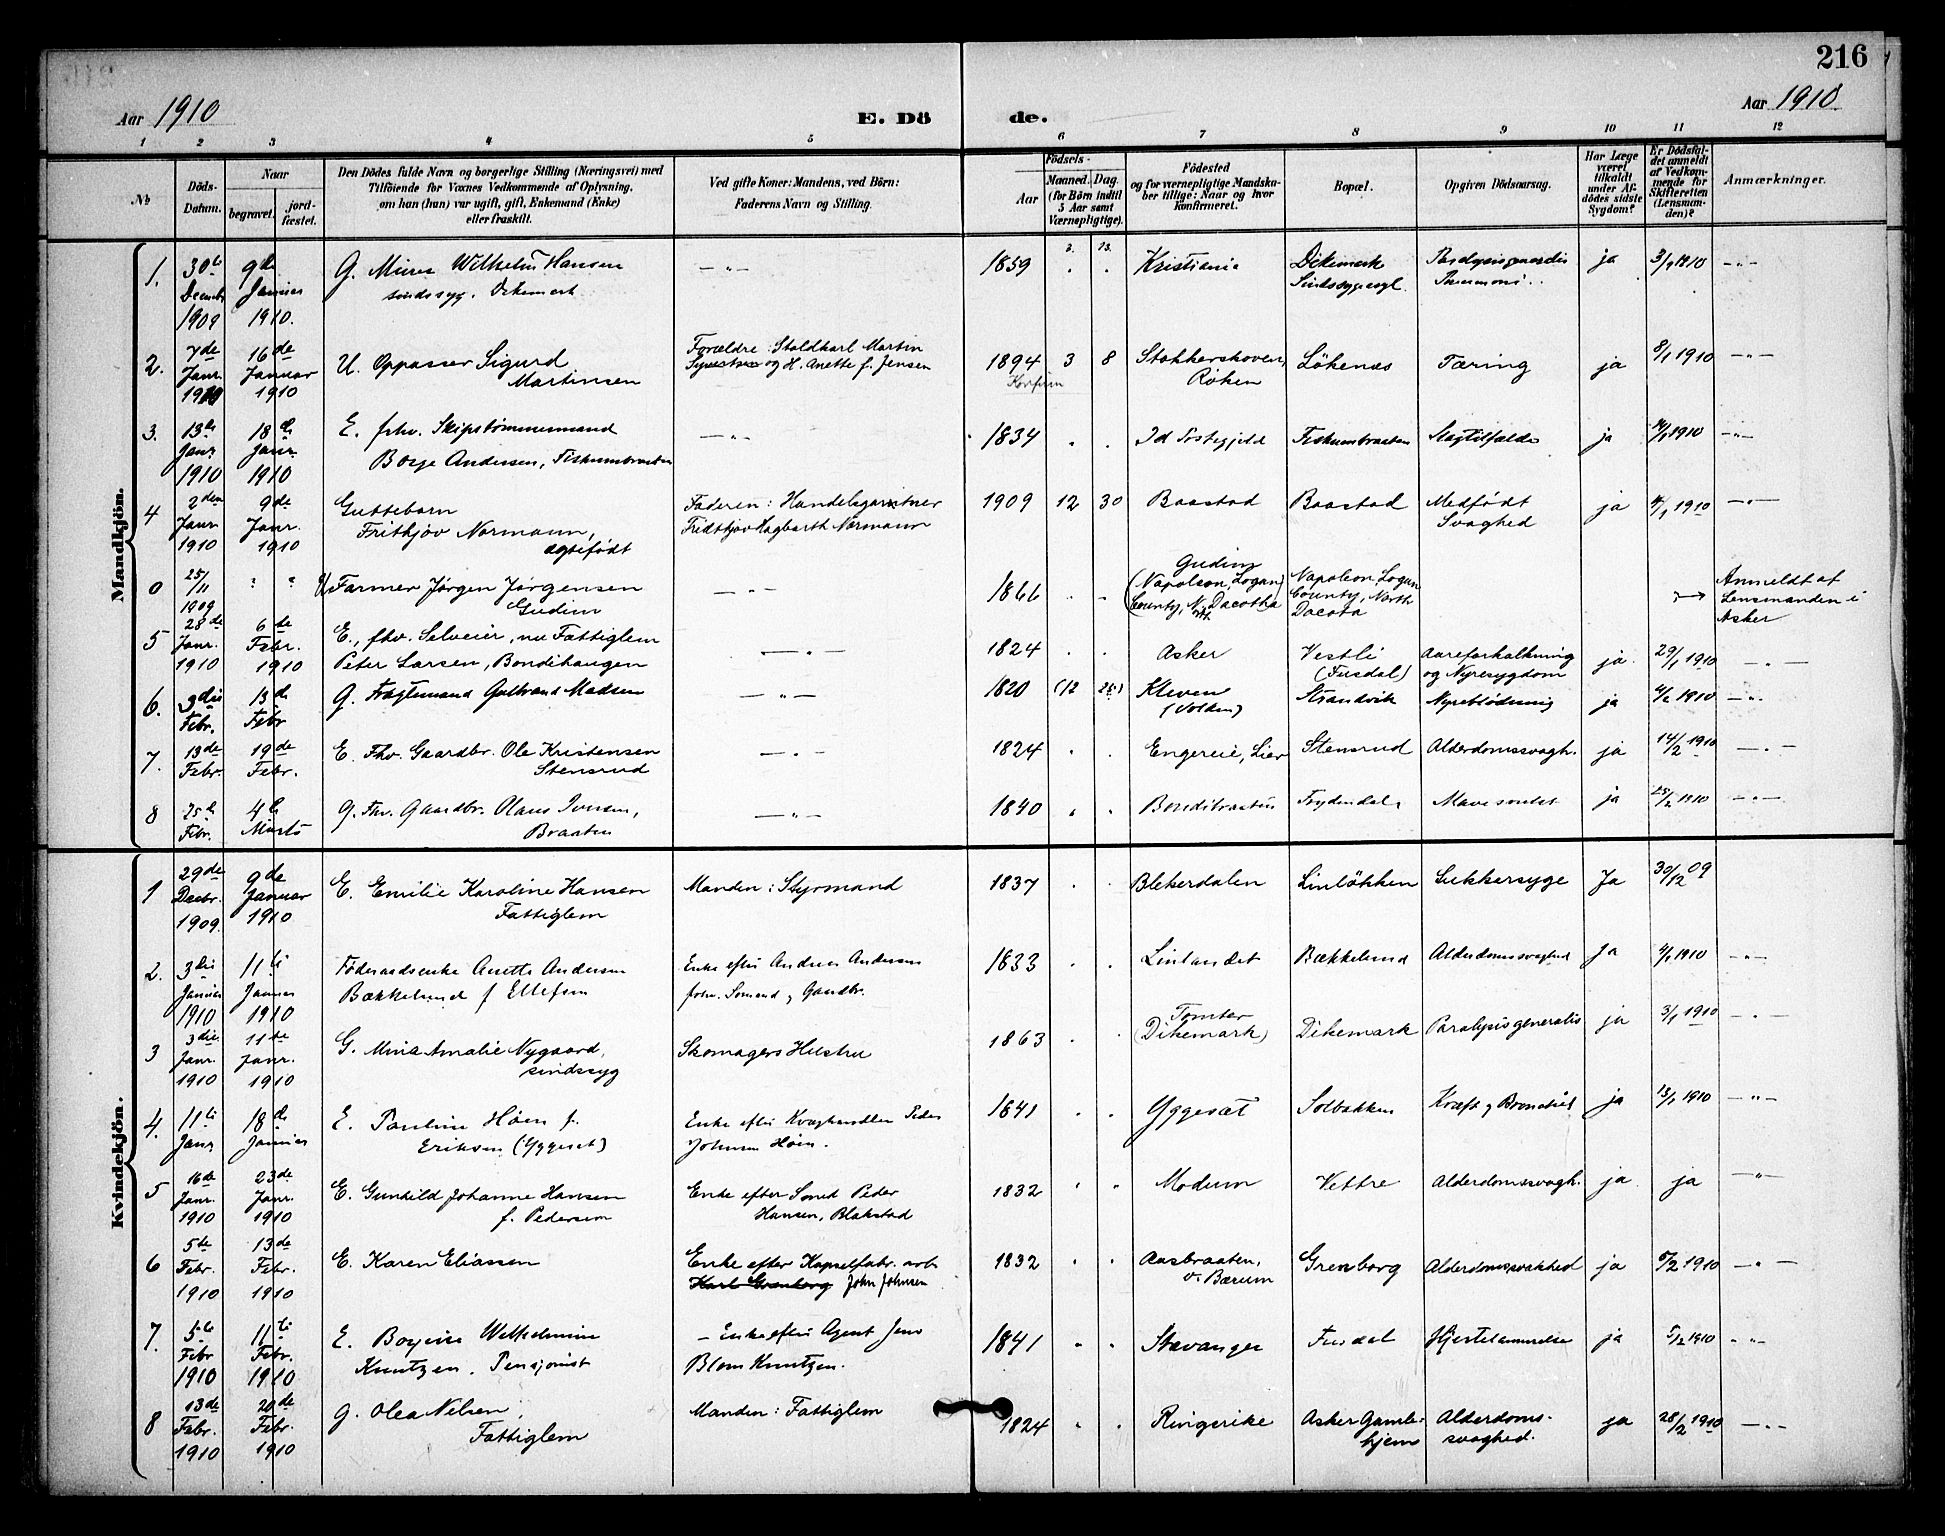 216
Aar 1910
E. Dö
de.
Aar 1910
1 2 3 4 5 6 7 8 9 10 11 12
No
Döds-
Datum.
Naar
begravet.
jord-
fæstet.
Den Dödes fulde Navn og borgerlige Stilling (Næringsvei) med
Tilföiende for Voxnes Vedkommende af Oplysning,
om han (hun) var ugift, gift, Enkemand (Enke)
eller fraskilt.
Ved gifte Koner: Mandens, ved Börn:
Faderens Navn og Stilling.
Födsels-
Aar
Maaned. Dag.
(for Börn indtil
5 Aar samt
Værnepligtige).
Födested
og for værnepligtige Mandska-
ber tillige: Naar og hvor
konfirmeret.
Bopæl.
Opgiven Dödsaarsag.
Har Læge
været
tilkaldt
under Af-
dödes sidste
Sygdom?
Er Dödsfal-
det anmeldt
af Vedkom-
mende for
Skifteretten
(Lensman-
den)?
Anmærkninger.
Mandkjön.
1. 30te 9de G. Wilhelm Hansen — " — 1859 . . Kristiania Dikemark ja 3/1 1910 — " —
Decemb. Januar sindssyg. Dikemark Sindssygeasyl.
1909 1910.
2. 7de 16de U. Oppasser Sigurd Forældre: Staldkarl Martin 1894 3 8 Stokkerskoven, Lökenæs Tæring ja 8/1 1910 — " —
Janr. Januar Martinsen og H. Anette f. Jensen Röken
1910 1910
3. 13de 18de E. fhv. Skipstömmermand — " — 1834 . . Id Prestegjeld Fiskumbraaten Slagtilfælde ja 14/1 1910 — " —
Janr Janr Borge Andersen, Fiskumbraaten
1910 1910
4 2den 9de Guttebarn Faderen: Handelsgartner 1909 12 30 Baastad Baastad Medfödt ja 4/1 1910 — " —
Janr. Janr. Frithjov Normann, Fridthjov Hagbarth Normann Svaghed
1910 1910 ægtefödt
0 25/11 ? ? Farmer Jörgen Jörgensen — " — 1866 . . Gudim Napoleon, Logan Anmeldt af
1909 Gudim (Napoleon, Logan County, North Lensmanden i
County, N. Dacotha Dacota Asker
5 28de 6te E., fhv. Selveier, nu Fattiglem — " — 1824 . . Asker Vestli Aareforkalkning ja. 29/1 1910 — " —
Janr. Febr. Peter Larsen, Bondihaugen (Fusdal) og Nyresygdom
1910 1910
6. 3die 13de G. Fragtemand Gulbrand Madsen — " — 1820 (12 26) Kleven Strandvik Nyreblödning ja 4/2 1910 — " —
Febr. Febr (Volden)
7. 13de 19de E. Fhv. Gaardbr. Ole Kristensen — . — 1824 . . Engereie, Lier Stensrud Alderdomssvagh. ja 14/2 1910 — " —
Febr. Febr. Stensrud
8 25de 4de G. Fhv. Gaardbr. Olaus Iversen, — " — 1840 . . Bondibraaten Frydendal ja 25/2 1910 — " —
Febr. Marts Braaten
Kvindekjön.
1 29de 9de E. Emilie Karoline Hansen Manden: Styrmand 1837 . . Blekerdalen Linlökken Sukkersyge Ja 30/12 09
Decbr. Januar Fattiglem
1909. 1910
2. 3die 11te Föderaadsenke Anette Andersen Enke efter Andreas Andersen 1833 . . Linlandet Bækkelund Alderdomssvaghed Ja 4/1 1910 — " —
Januar Januar Bækkelund f Ellefsen fohv. Sömand og Gaardbr.
1910 1910
3 3die 11te G. Mina Amalie Nygaard, Skomagers Hustru 1863 . . Tomter Dikemark Paralysis generalis ja 3/1 1910 — " —
Janr. Janr. sindssyg (Dikemark)
1910 1910
4. 11te 18de E. Pauline Höen f. Enke efter Kvæghandler Peder 1841 . . Yggeset Solbakken Kræft og Bronchit ja 13/1 1910 — " —
Janr Januar Eriksen (Yggeset) Johnsen Höen.
5 16de 23de E. Gunhild Johanne Hansen Enke efter Smed Peder 1832 . . Modum Vettre Alderdomssvagh. ja ja — " —
Janr. Janr. f. Pedersen Hansen, Blakstad
1910 1910
6 5te 13de E. Karen Eliassen Enke efter Kapselfabr. arb. 1832 . . Aasbraaten, Grenborg Alderdomssvakhed ja 5/2 1910 — " —
Febr. Febr. John Johnsen v. Bærum
1910 1910
7. 5te 11te E. Wilhelmine — Enke efter Agent Jens 1841 . . Stavanger Fusdal Hjertelammelse ja 5/2 1910 " "
Febr Febr. Knutzen. Pensjonist Blom Knutzen.
1910 1910
8 13de 20de G. Olea Nilsen, Manden: Fattiglem 1824 . . Ringerike Asker Gamle- Alderdoms- ja 28/2 1910 — " —
Febr. Febr. Fattiglem hjem svaghed.
1910 1910